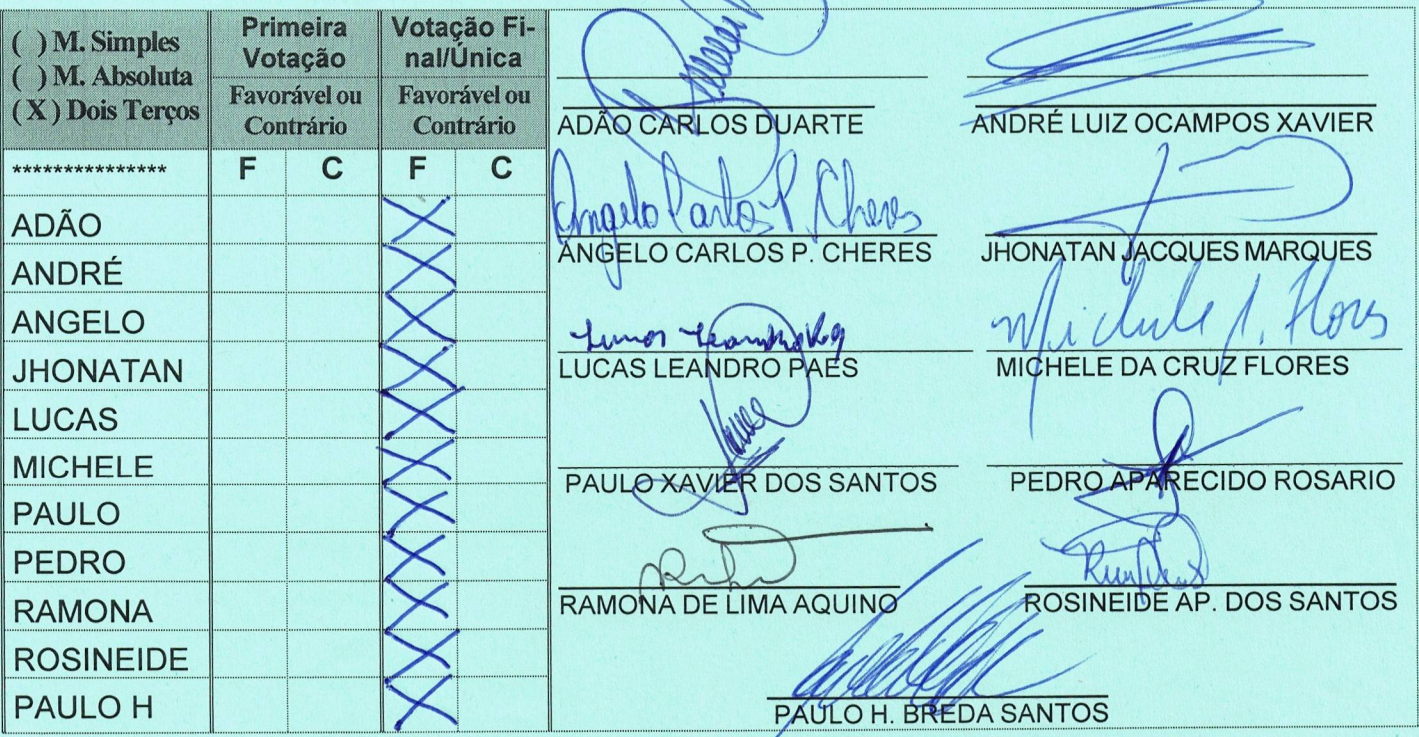 ( ) M. Simples
( ) M. Absoluta
( X ) Dois Terços
Primeira
Votação
Favorável ou
Contrário
Votação Fi-
nal/Única
Favorável ou
Contrário
***************
F C F C
ADÃO X
ANDRÉ X
ANGELO X
JHONATAN X
LUCAS X
MICHELE X
PAULO X
PEDRO X
RAMONA X
ROSINEIDE X
PAULO H X
ADÃO CARLOS DUARTE
ANDRÉ LUIZ OCAMPOS XAVIER
Angelo Carlos P. Cheres
ÂNGELO CARLOS P. CHERES
JHONATAN JACQUES MARQUES
Michele Flores
LUCAS LEANDRO PAES
MICHELE DA CRUZ FLORES
PAULO XAVIER DOS SANTOS
PEDRO APARECIDO ROSARIO
RAMONA DE LIMA AQUINO
ROSINEIDE AP. DOS SANTOS
PAULO H. BREDA SANTOS